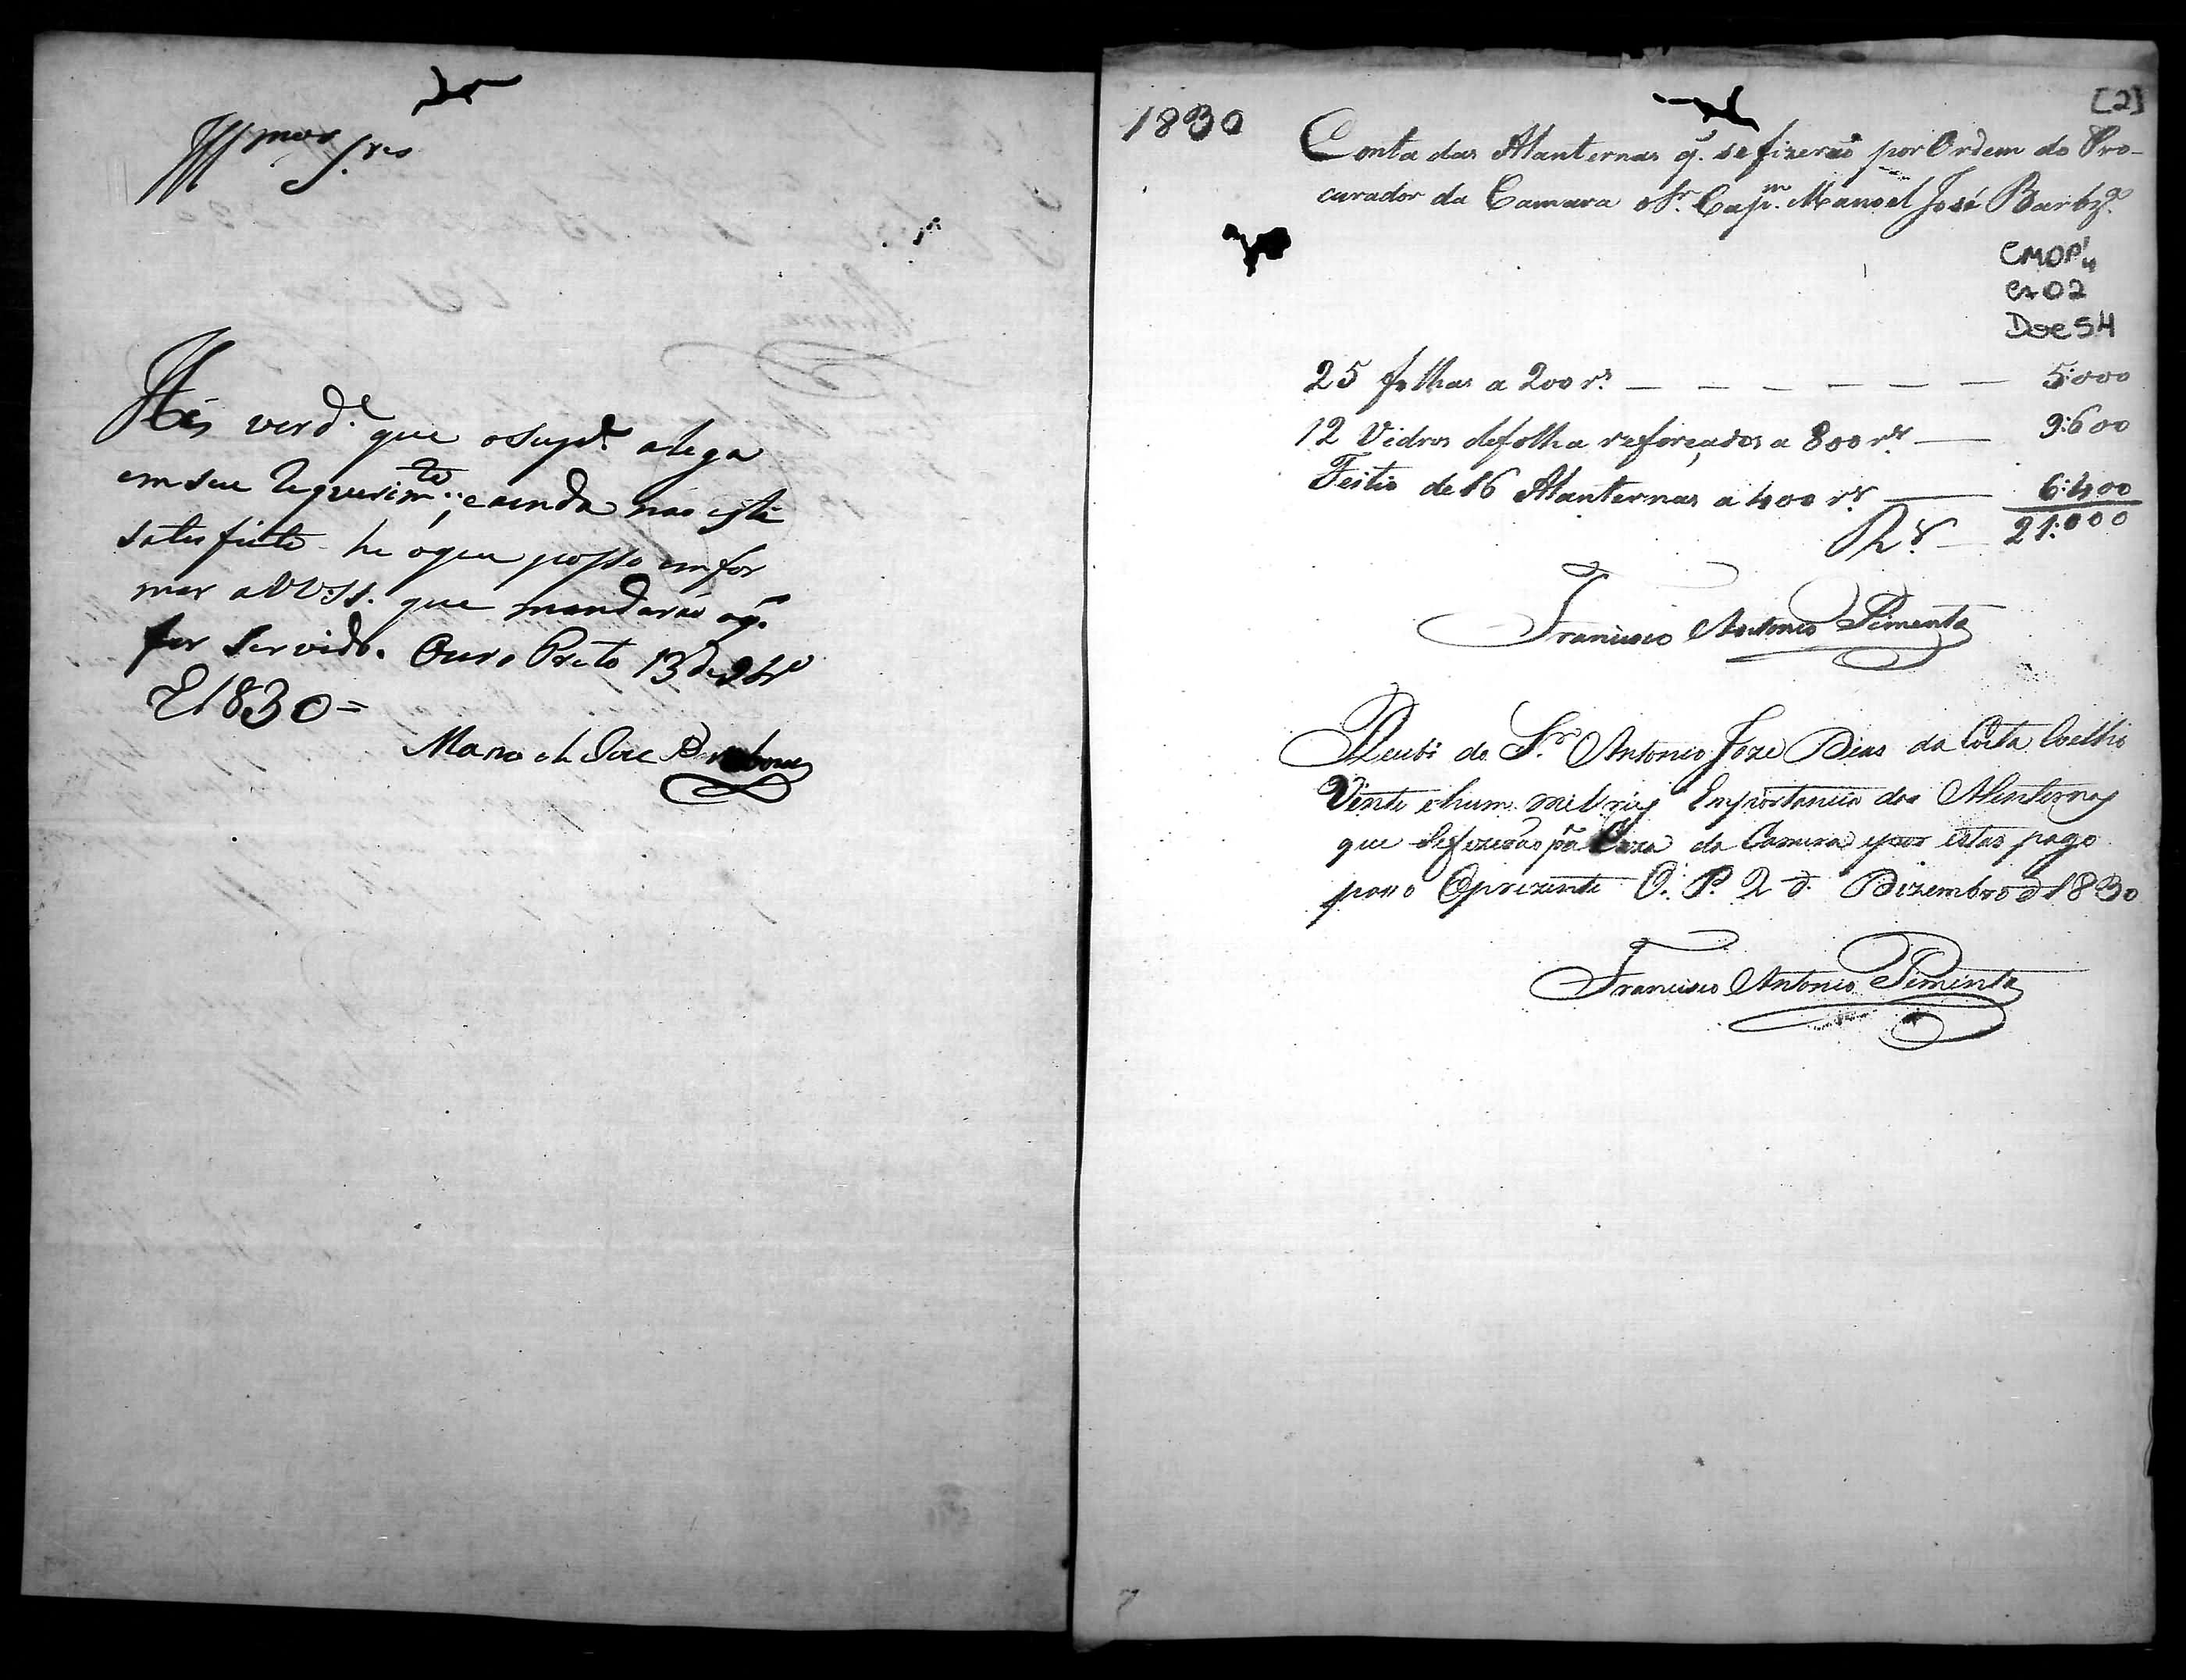 Illmos Sres
Hé verde que o Supte alega
em seu requerimto, e ainda não está
satisfeito he o que posso emfor
mar a VV.SS. que mandarão o q.
for servido. Ouro Preto 13 de 9bro
E 1830=
Manoel Jose Barboza
1830
[2]
Conta das Alanternas q. se fizerão por Ordem do Pro-
curador da Camara o Sr. Capm. Manoel José Barbza.
CMOP
Cx 02
Doc 54
25 folhas a 200 rs. — — — — — — 5:000
12 Vidros de folha reforçados a 800 rs. — 9:600
Feitio de 16 Alanternas a 400 rs. — 6:400
Rs. — 21:000
Francisco Antonio Pimenta
Recebi do Sr. Antonio Joze Dias da Costa Coelho
Vinte e hum mil reis Emportancia das Alenternas
que se fizerão pa Caza da Camera e por estar pago
paço o prezente O. P. 2 d. Dizembro d 1830
Francisco Antonio Pimenta